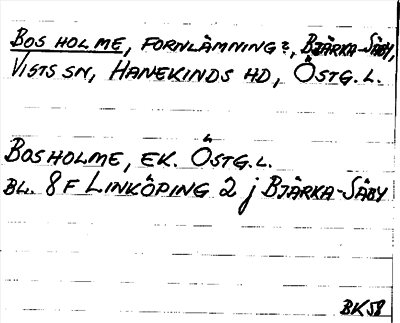 BOSHOLME, FORNLÄMNING?, BJÄRKA-SÄBY,
VISTS SN, HANEKINDS HD, ÖSTG. L.
BOSHOLME, EK. ÖSTG. L.
BL. 8 F LINKÖPING 2 j BJÄRKA-SÄBY
BK58